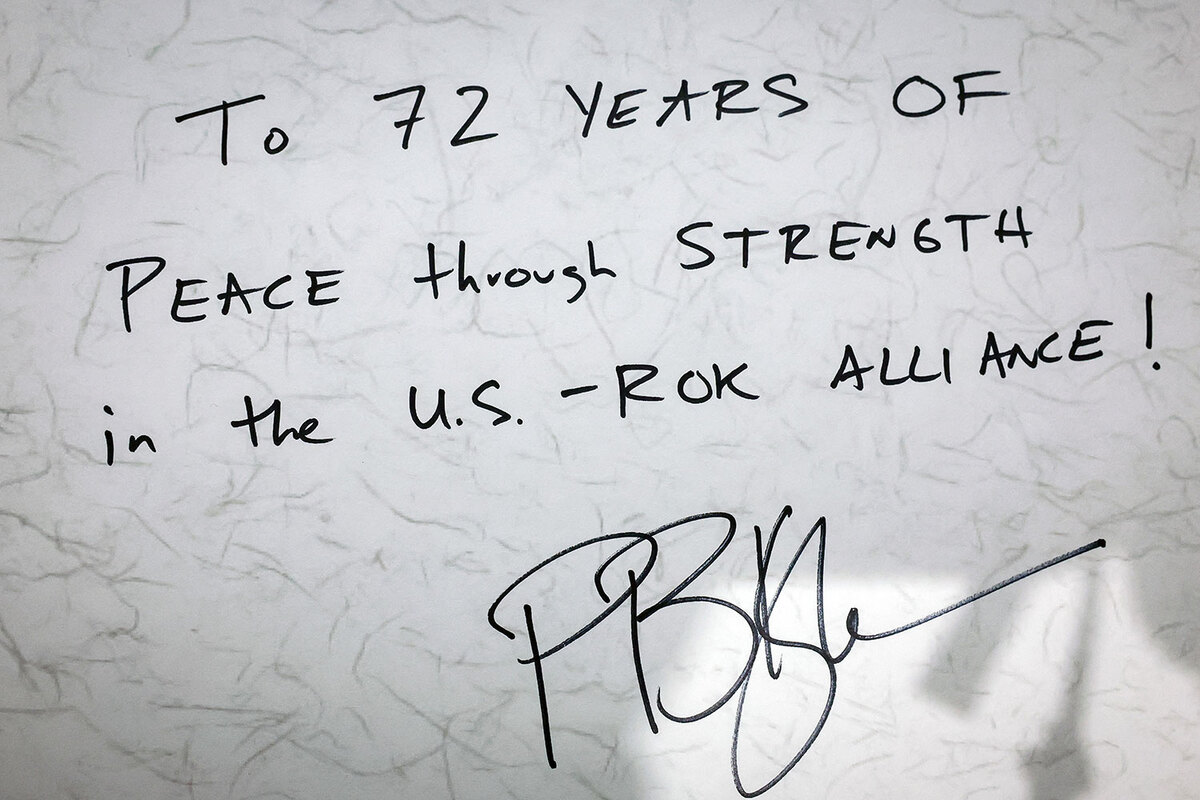 To 72 YEARS OF
PEACE through STRENGTH
in the U.S. - ROK ALLIANCE!